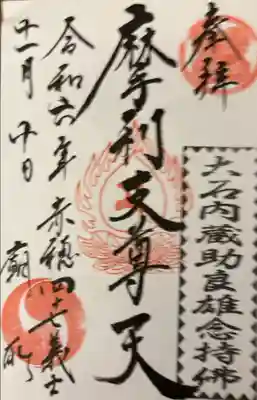 奉拝
大石内蔵助良雄念持佛
摩利支尊天
令和六年 赤穂四十七義士
十一月廿日 廟所